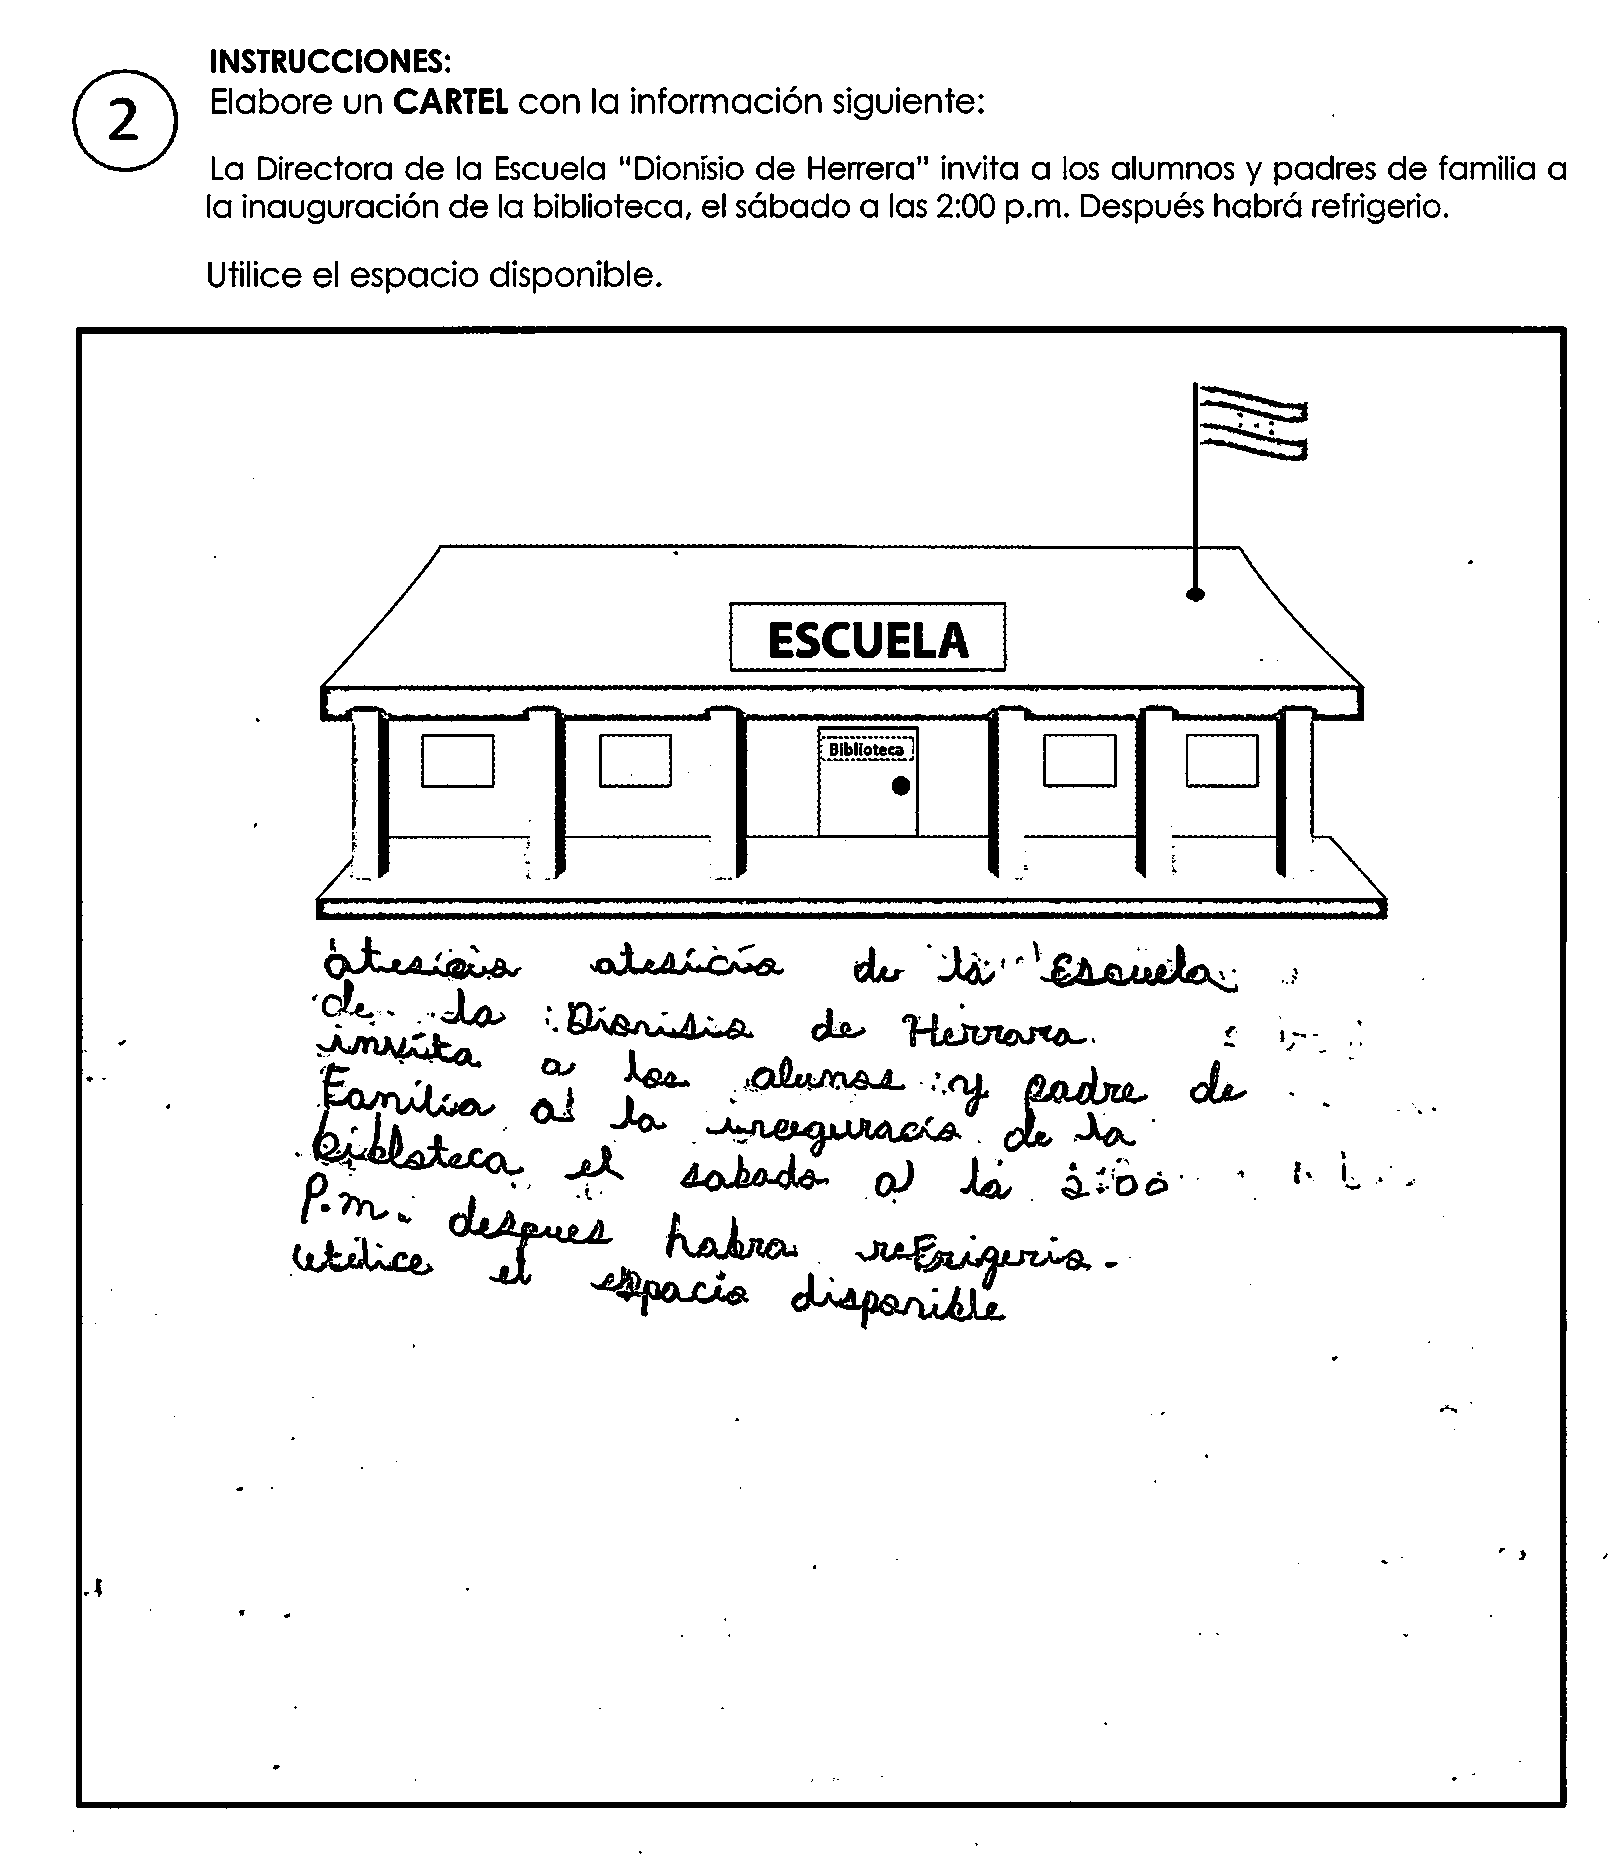 INSTRUCCIONES:
2
Elabore un CARTEL con la información siguiente:
La Directora de la Escuela "Dionisio de Herrera" invita a los alumnos y padres de familia a
la inauguración de la biblioteca, el sábado a las 2:00 p.m. Después habrá refrigerio.
Utilice el espacio disponible.
ESCUELA
Biblioteca
atesicia atesicia de la Escuela
de la Dionisio de Herrara
invita a los alunos y padre de
Familia al la de la
bibloteca el sabado al la 2:00
P.m. despues habra reFrigerio.
utilice el espacio disponible